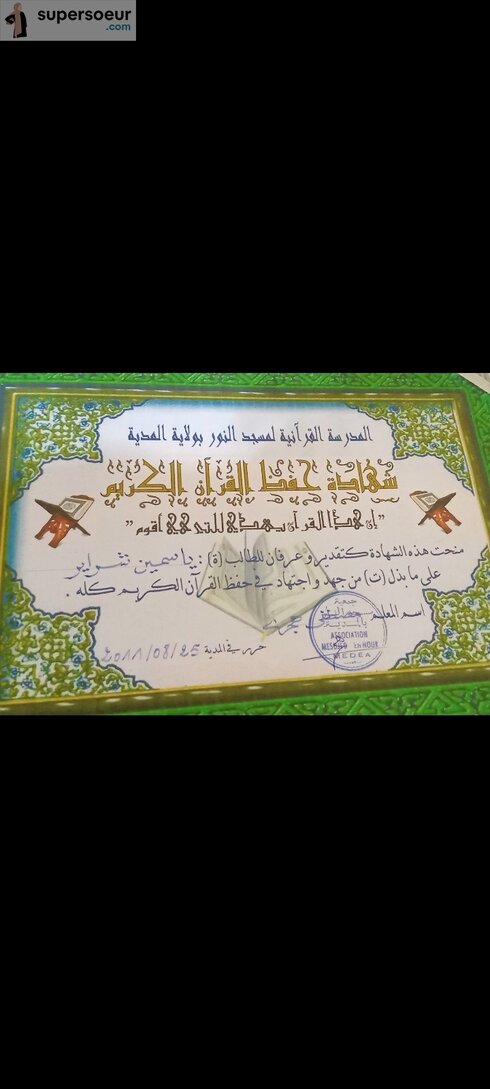 supersoeur
.com
المدرسة القرآنية لمسجد النور بولاية المدية
شهادة حفظ القرآن الكريم
"إن هذا القرآن يهدي للتي هي أقوم"
منحت هذه الشهادة كتقدير وعرفان للطالب (ة): ياسمين
على ما بذل (ت) من جهد واجتهاد في حفظ القرآن الكريم كله.
اسم المعلم
ASSOCIATION
EN NOUR
MEDEA
حرر في المدية 2011/08/25